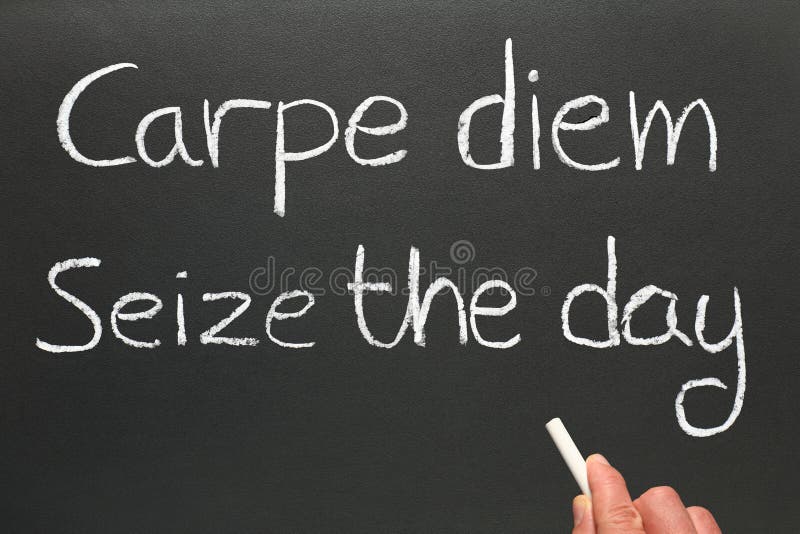 Carpe diem
Seize the day
dreamstime